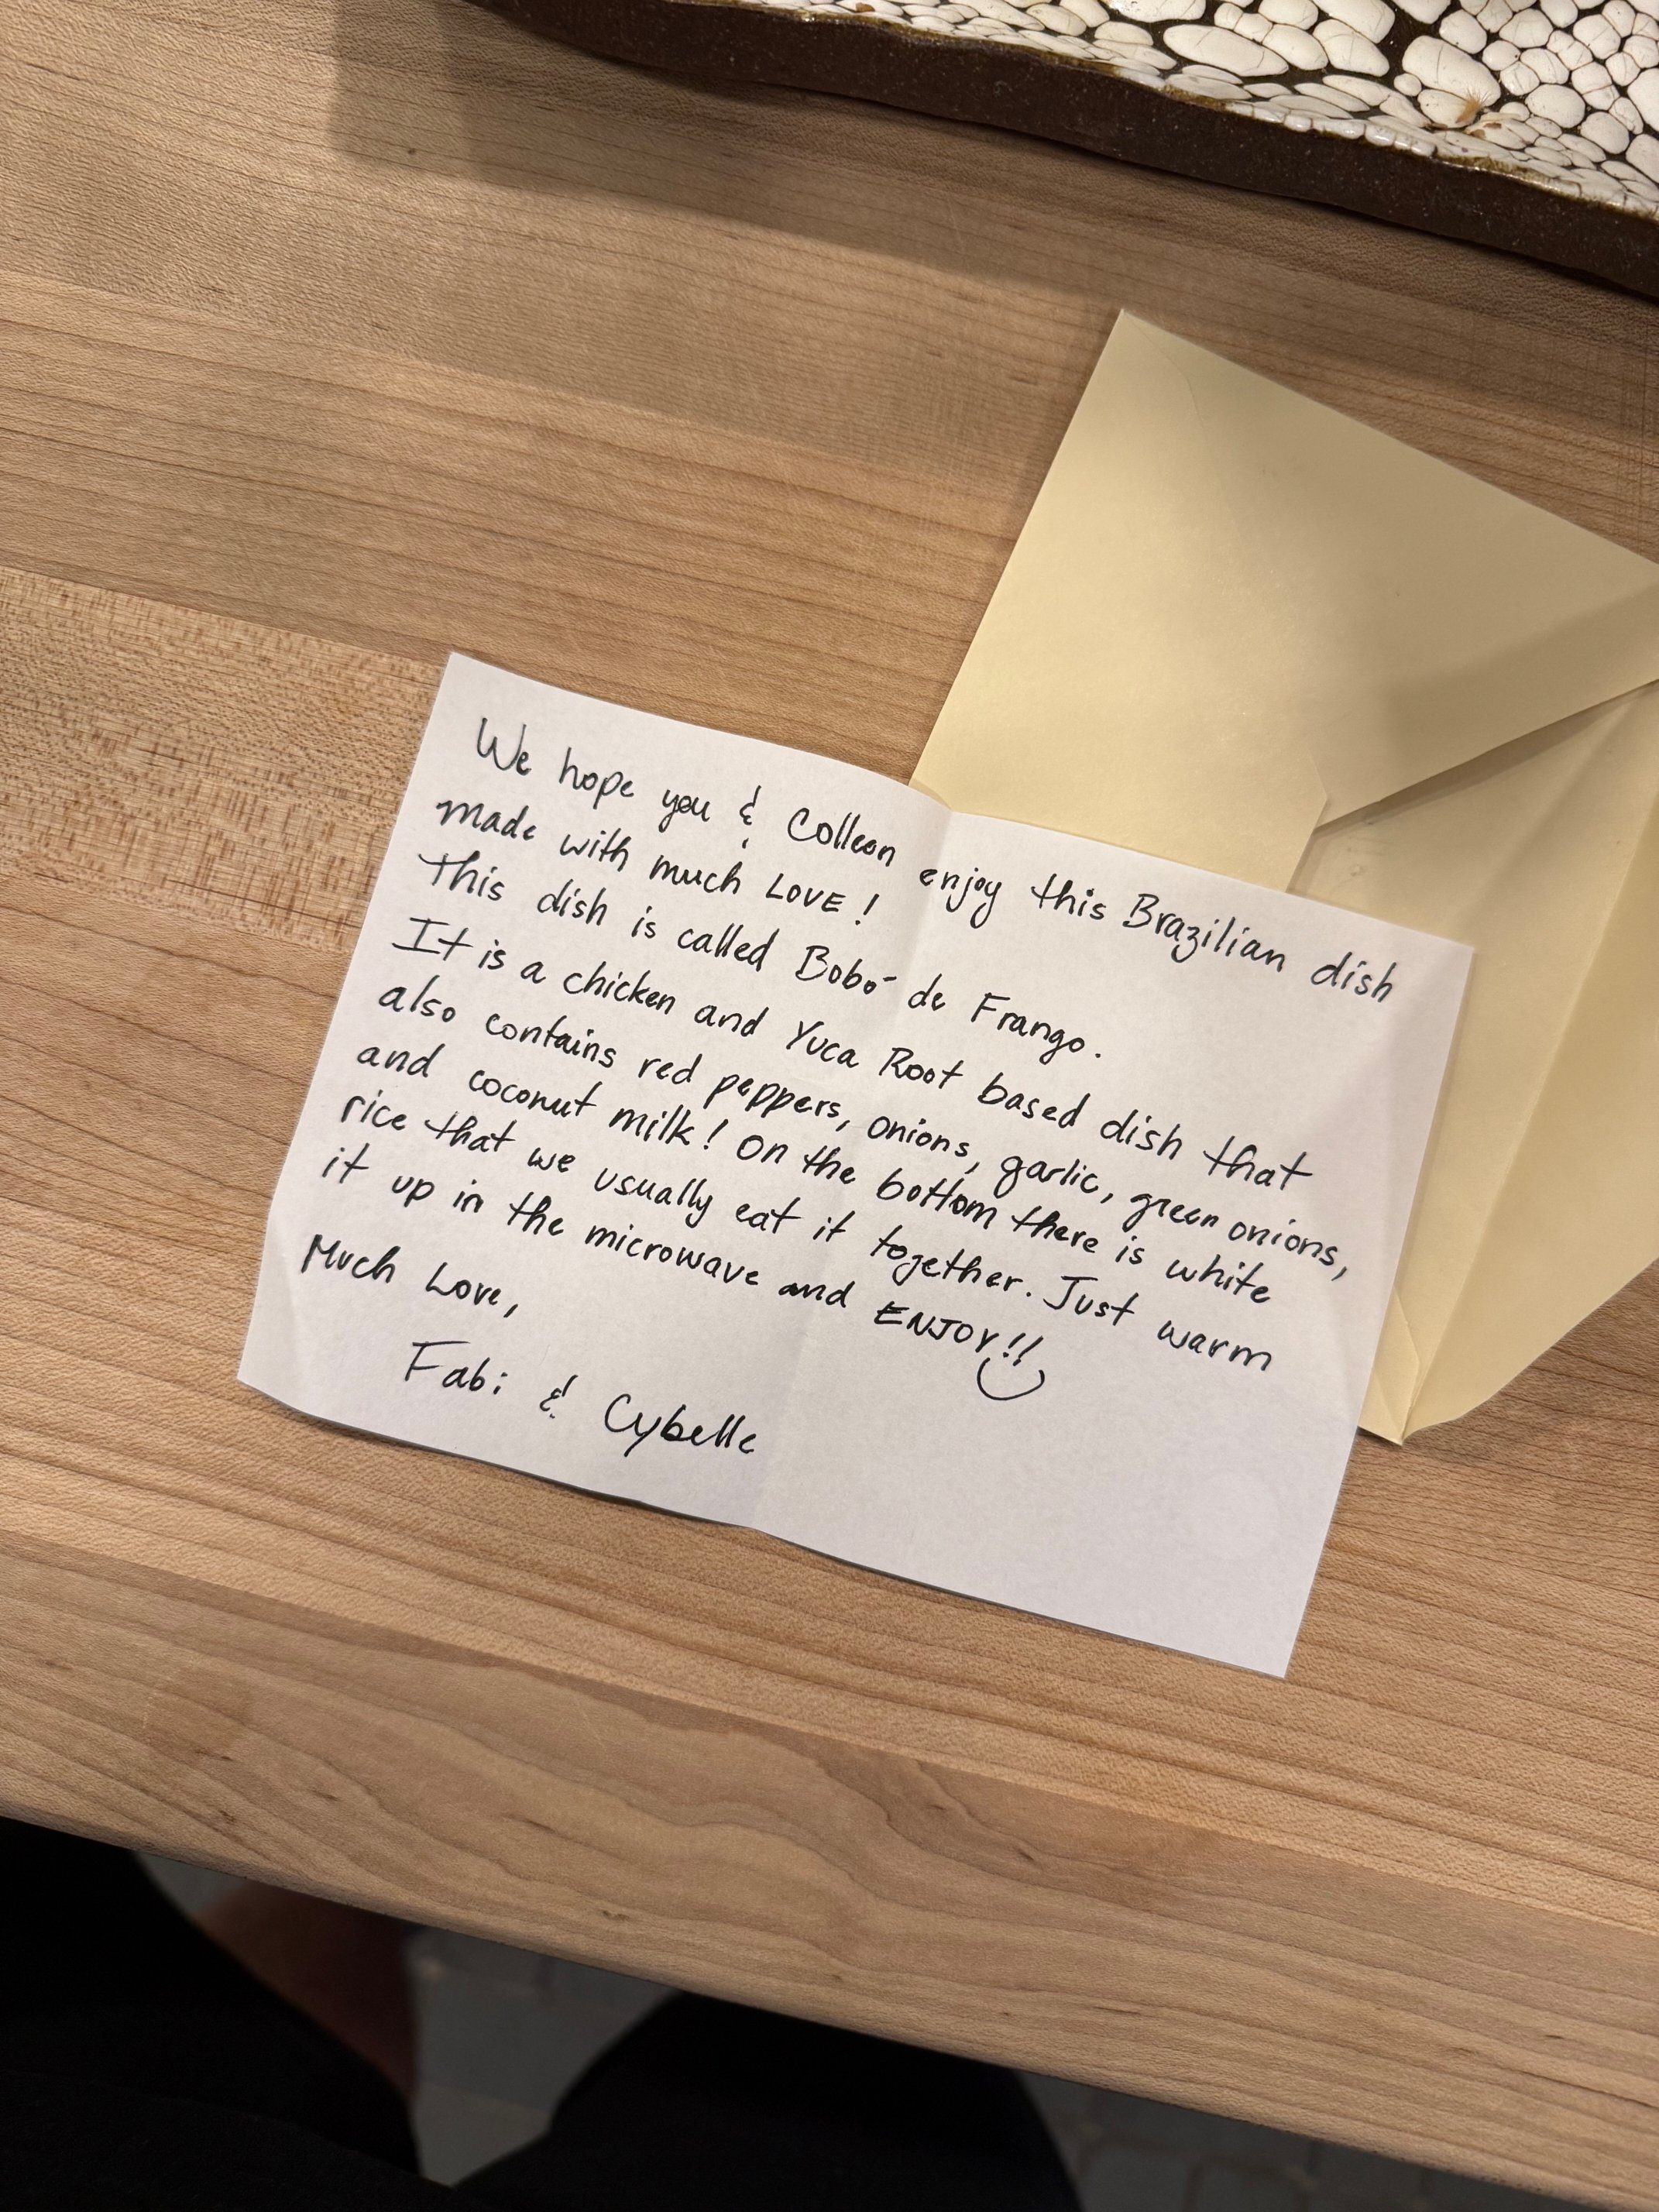 We hope you & Colleen enjoy this Brazilian dish
made with much LOVE!
This dish is called Bobó de Frango.
It is a chicken and Yuca Root based dish that
also contains red peppers, onions, garlic, green onions,
and coconut milk! On the bottom there is white
rice that we usually eat it together. Just warm
it up in the microwave and ENJOY!!
Much Love,
Fabi & Cybelle